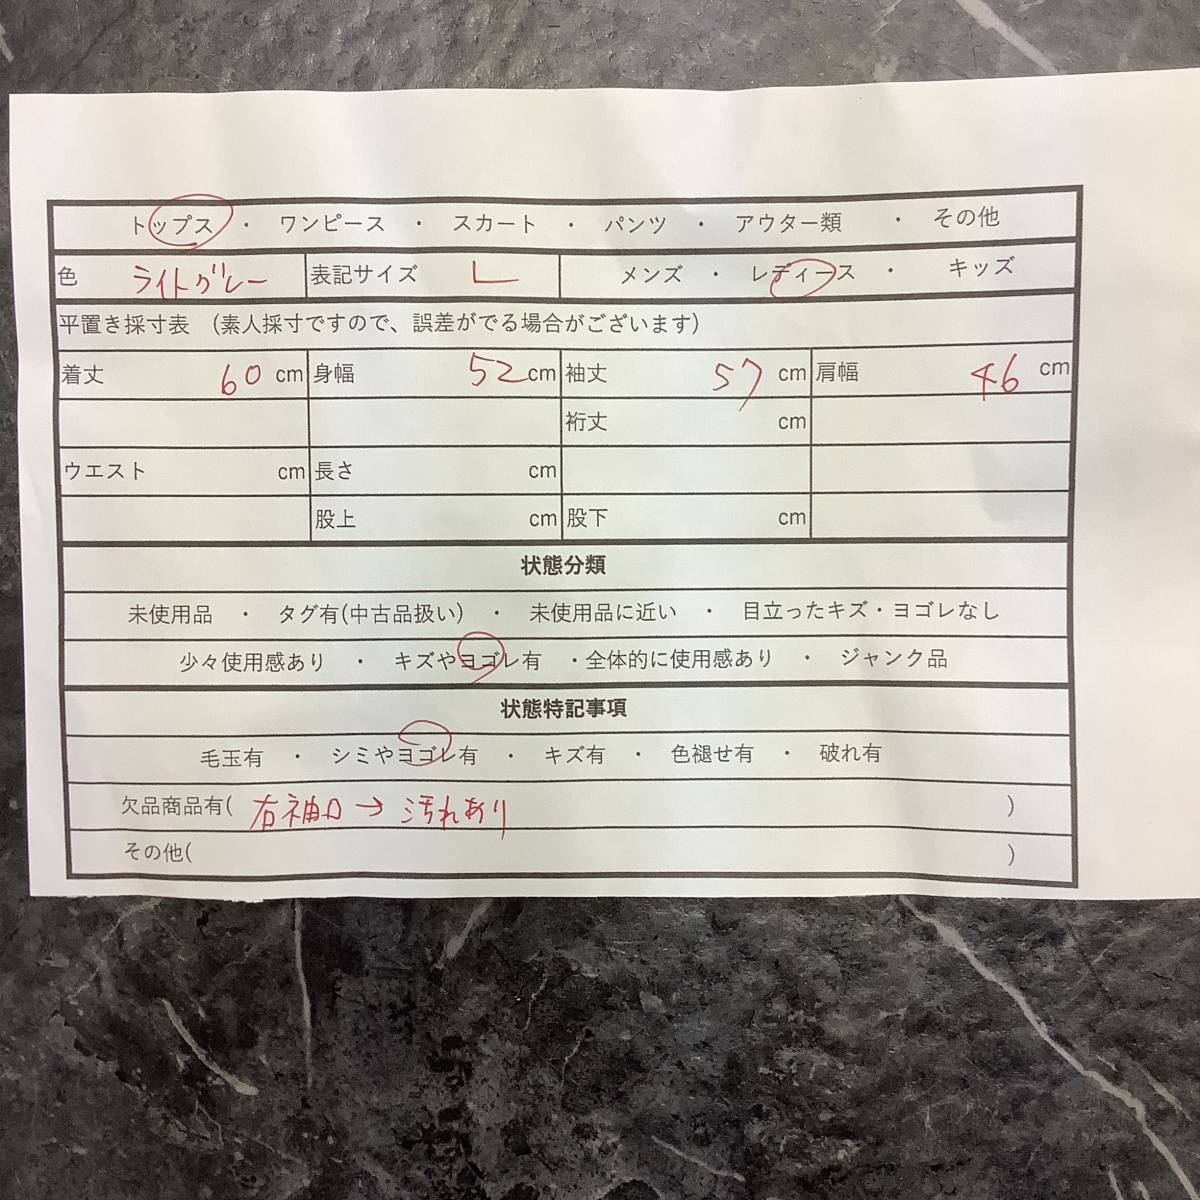 トップス ・ ワンピース ・ スカート ・ パンツ ・ アウター類 ・ その他
色 ライトグレー 表記サイズ L メンズ ・ レディース ・ キッズ
平置き採寸表 (素人採寸ですので、誤差がでる場合がございます)
着丈 60 cm 身幅 52 cm 袖丈 57 cm 肩幅 46 cm
裄丈 cm
ウエスト cm 長さ cm
股上 cm 股下 cm
状態分類
未使用品 ・ タグ有(中古品扱い) ・ 未使用品に近い ・ 目立ったキズ・ヨゴレなし
少々使用感あり ・ キズやヨゴレ有 ・全体的に使用感あり ・ ジャンク品
状態特記事項
毛玉有 ・ シミやヨゴレ有 ・ キズ有 ・ 色褪せ有 ・ 破れ有
欠品商品有( 右袖口 → 汚れあり )
その他( )